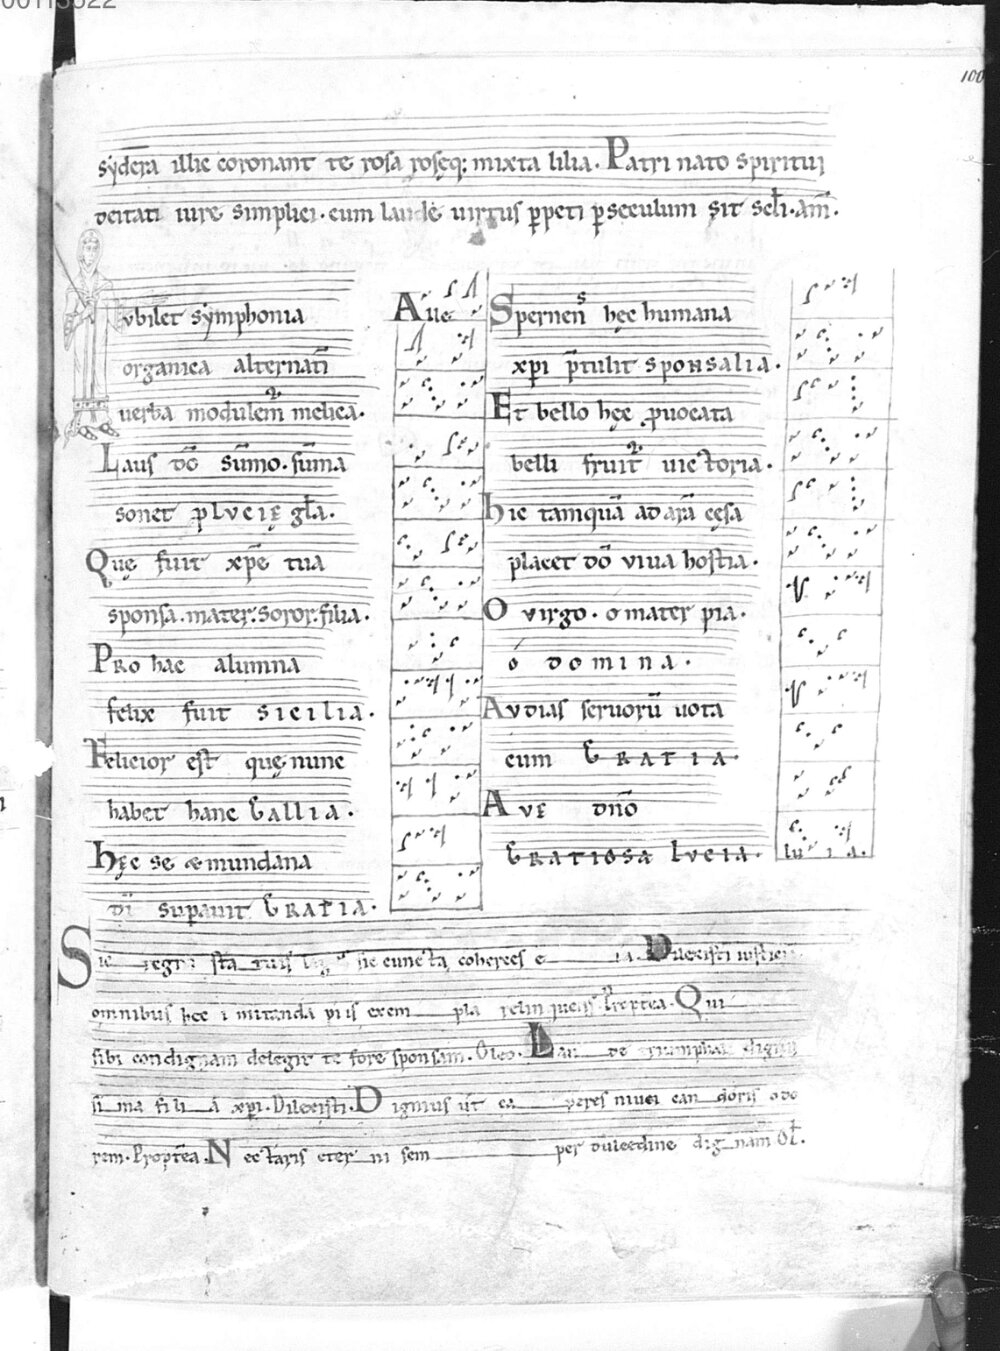 100
sydera illic coronant te rosa roseq; mixta lilia. Patri nato spiritui
deitati iure simplici. cum laude uirtus ꝑpeti ꝑ seculum sit scl̄i. am̄.
Iubilet symphonia
organica alternati
uerba modulem̄ melica.
Laus dō sūmo. sūma
sonet ꝑ lucię gl̄a.
Quę fuit xp̄e tua
sponsa. mater. soror. filia.
Pro hac alumna
felix fuit sicilia.
Felicior est quę nunc
habet hanc Gallia.
hęc se & mundana
dī supauit Gratia.
Aue
Spernens hęc humana
xp̄i p̄tulit sponsalia.
Et bello hęc ꝓuocata
belli fruit̄ uictoria.
hic tamquā ad arā cęsa
placet dō uiua hostia.
O uirgo. o mater pia.
o domina.
Audias seruorū uota
cum Gratia.
Aue dn̄o
Gratiosa lucia.
lu i a.
Sic regni sic cuncta coheres e ia Dilexisti iusticia
omnibus hęc i mitanda pi is exem pla Proptea. Qui
sibi condignam delegit te fore sponsam. Oleo. triumphat
si ma fi li a xp̄i. Dilexisti. Dignius ut niuei can doris odo
rem. Proptea. Nectaris eter ni sem per dulcedine dig nam Ol̄.